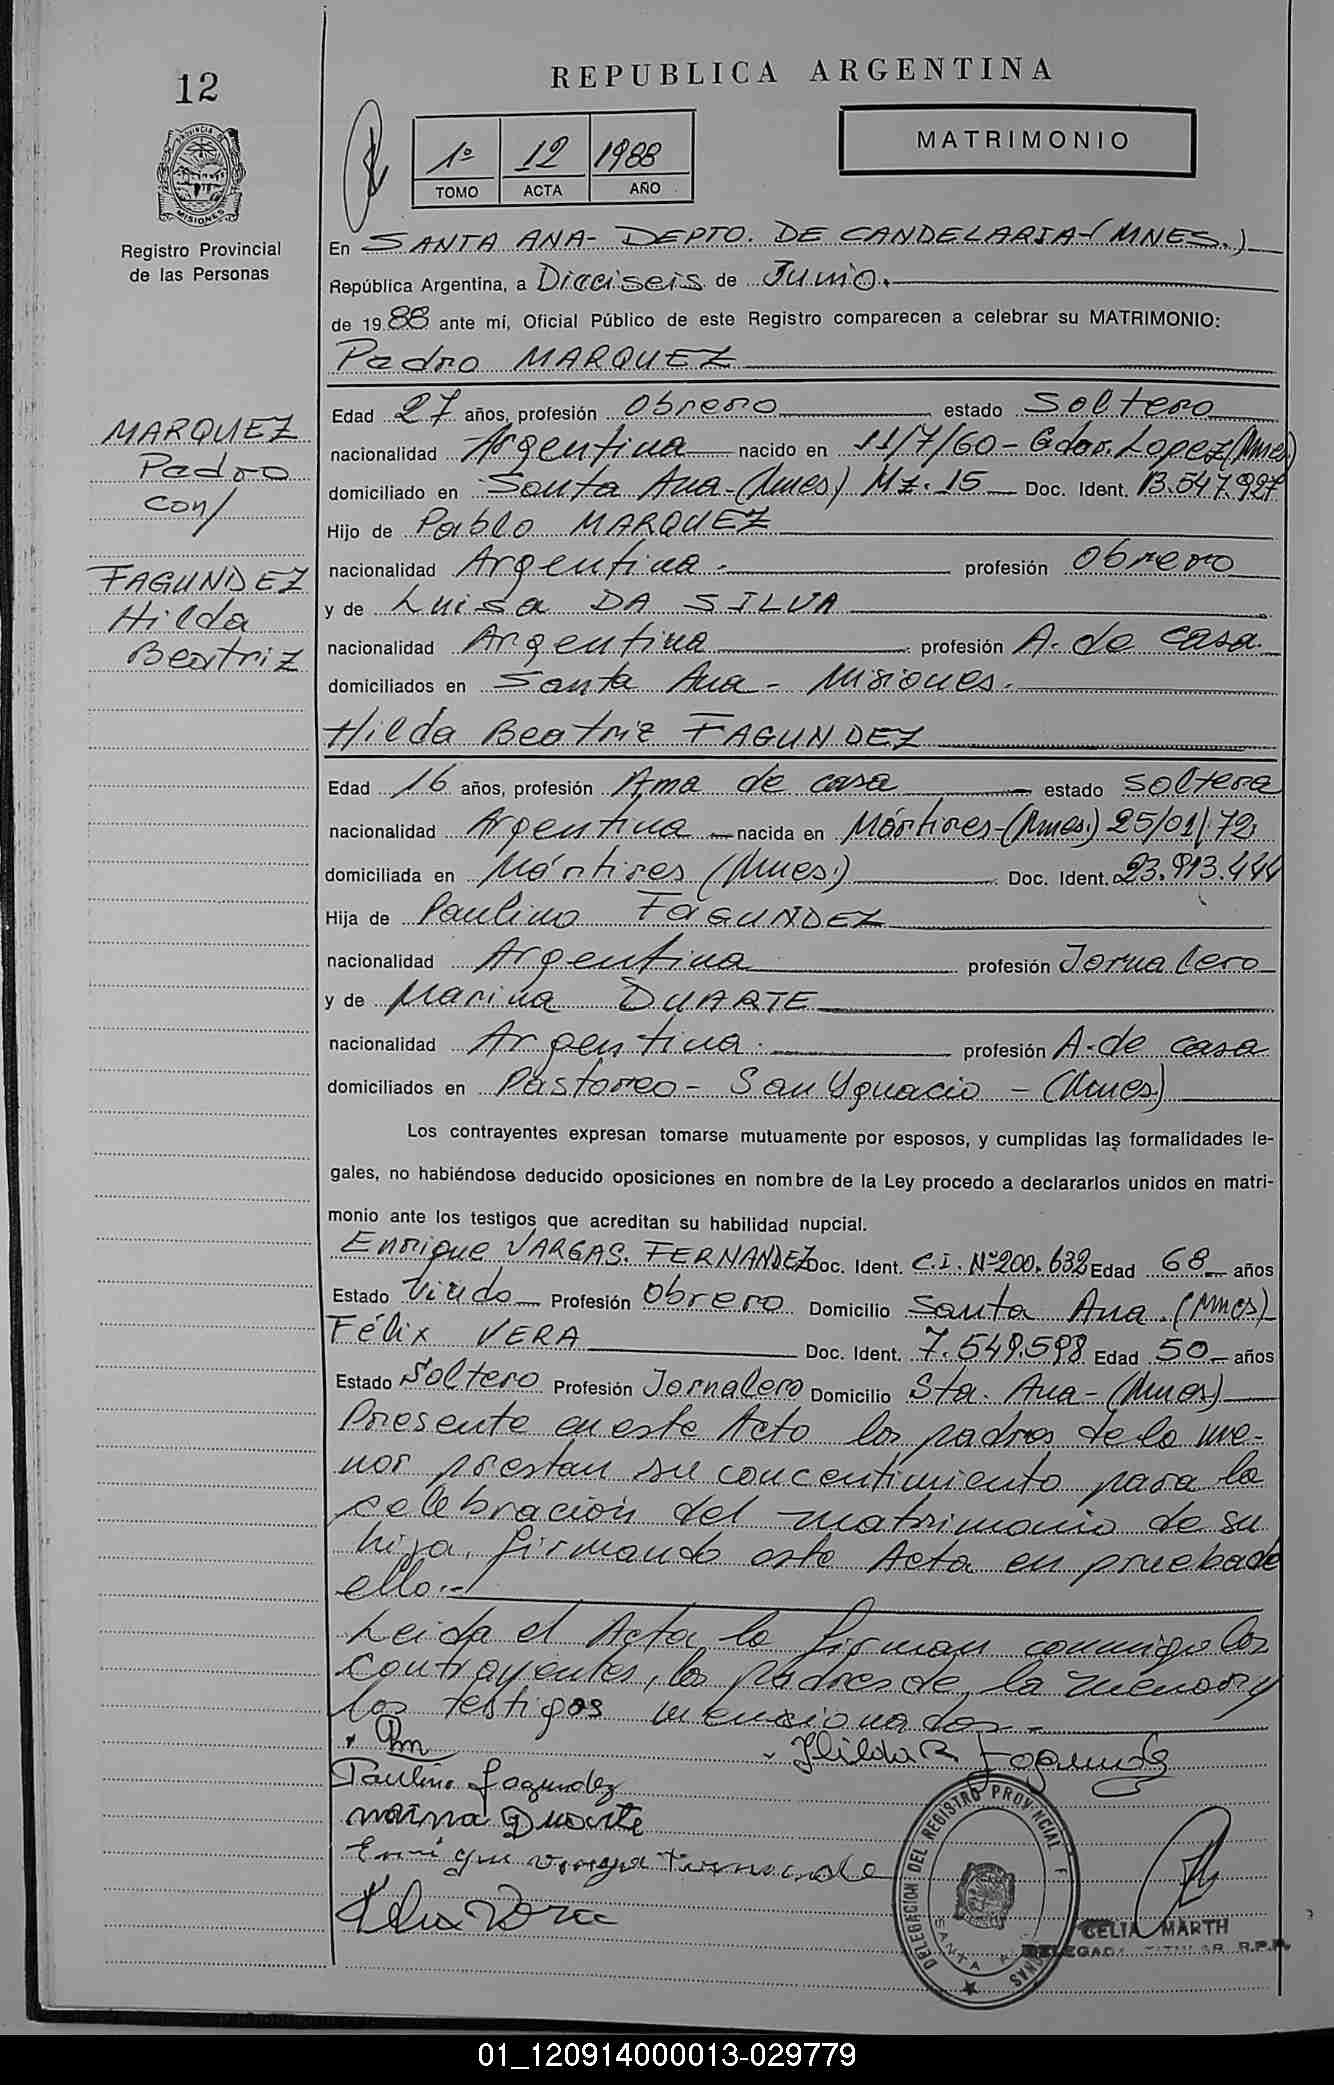 12
REPUBLICA ARGENTINA
1º 12 1988
TOMO ACTA AÑO
MATRIMONIO
PROVINCIA DE MISIONES
Registro Provincial
de las Personas
MARQUEZ
Pedro
con/
FAGUNDEZ
Hilda
Beatriz
En SANTA ANA- DEPTO. DE CANDELARIA-(MNES.)
República Argentina, a Dieciseis de Junio.
de 1988 ante mí, Oficial Público de este Registro comparecen a celebrar su MATRIMONIO:
Pedro MARQUEZ
Edad 27 años, profesión Obrero estado Soltero
nacionalidad Argentina nacido en 11/7/60- Gdor. Lopez (Mnes)
domiciliado en Santa Ana-(Mnes) Mz. 15 Doc. Ident. 13.547.927
Hijo de Pablo MARQUEZ
nacionalidad Argentina. profesión Obrero
y de Luisa DA SILVA
nacionalidad Argentina profesión A. de casa.
domiciliados en Santa Ana- Misiones.
Hilda Beatriz FAGUNDEZ
Edad 16 años, profesión Ama de casa estado soltera
nacionalidad Argentina nacida en Mártires-(Mnes.) 25/01/72.
domiciliada en Mártires (Mnes.) Doc. Ident. 23.913.444
Hija de Paulino FAGUNDEZ
nacionalidad Argentina profesión Jornalero
y de Marina DUARTE
nacionalidad Argentina. profesión A. de casa
domiciliados en Pastoreo- San Ygnacio - (Mnes)
Los contrayentes expresan tomarse mutuamente por esposos, y cumplidas las formalidades le-
gales, no habiéndose deducido oposiciones en nombre de la Ley procedo a declararlos unidos en matri-
monio ante los testigos que acreditan su habilidad nupcial.
Enrique VARGAS. FERNANDEZ Doc. Ident. C.I. Nº 200.632 Edad 68 años
Estado Viudo Profesión Obrero Domicilio Santa Ana. (Mnes)
Félix VERA Doc. Ident. 7.549.598 Edad 50 años
Estado Soltero Profesión Jornalero Domicilio Sta. Ana-(Mnes)
Presente en este Acto los padres de la me-
nor prestan su concentimiento para la
celebración del matrimonio de su
hija, firmando este Acta en prueba de
ello.-
Leida el Acta, la firman conmigo los
contrayentes, los padres de la menor y
los testigos mencionados.-
Pm
Hilda B Fagundez
Paulino fagundez
marina Duarte
Enrique vargas Fernande
Felix Vera
DELEGACION DEL REGISTRO PROVINCIAL
SANTA
CELIA MARTH
DELEGADA TITULAR R.P.P.
01_120914000013-029779